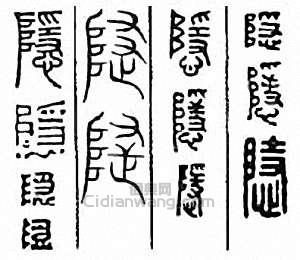 隱隱隱
隱隱隱
隱隱
隱隱隱隱
词典网
Cidianwang.com